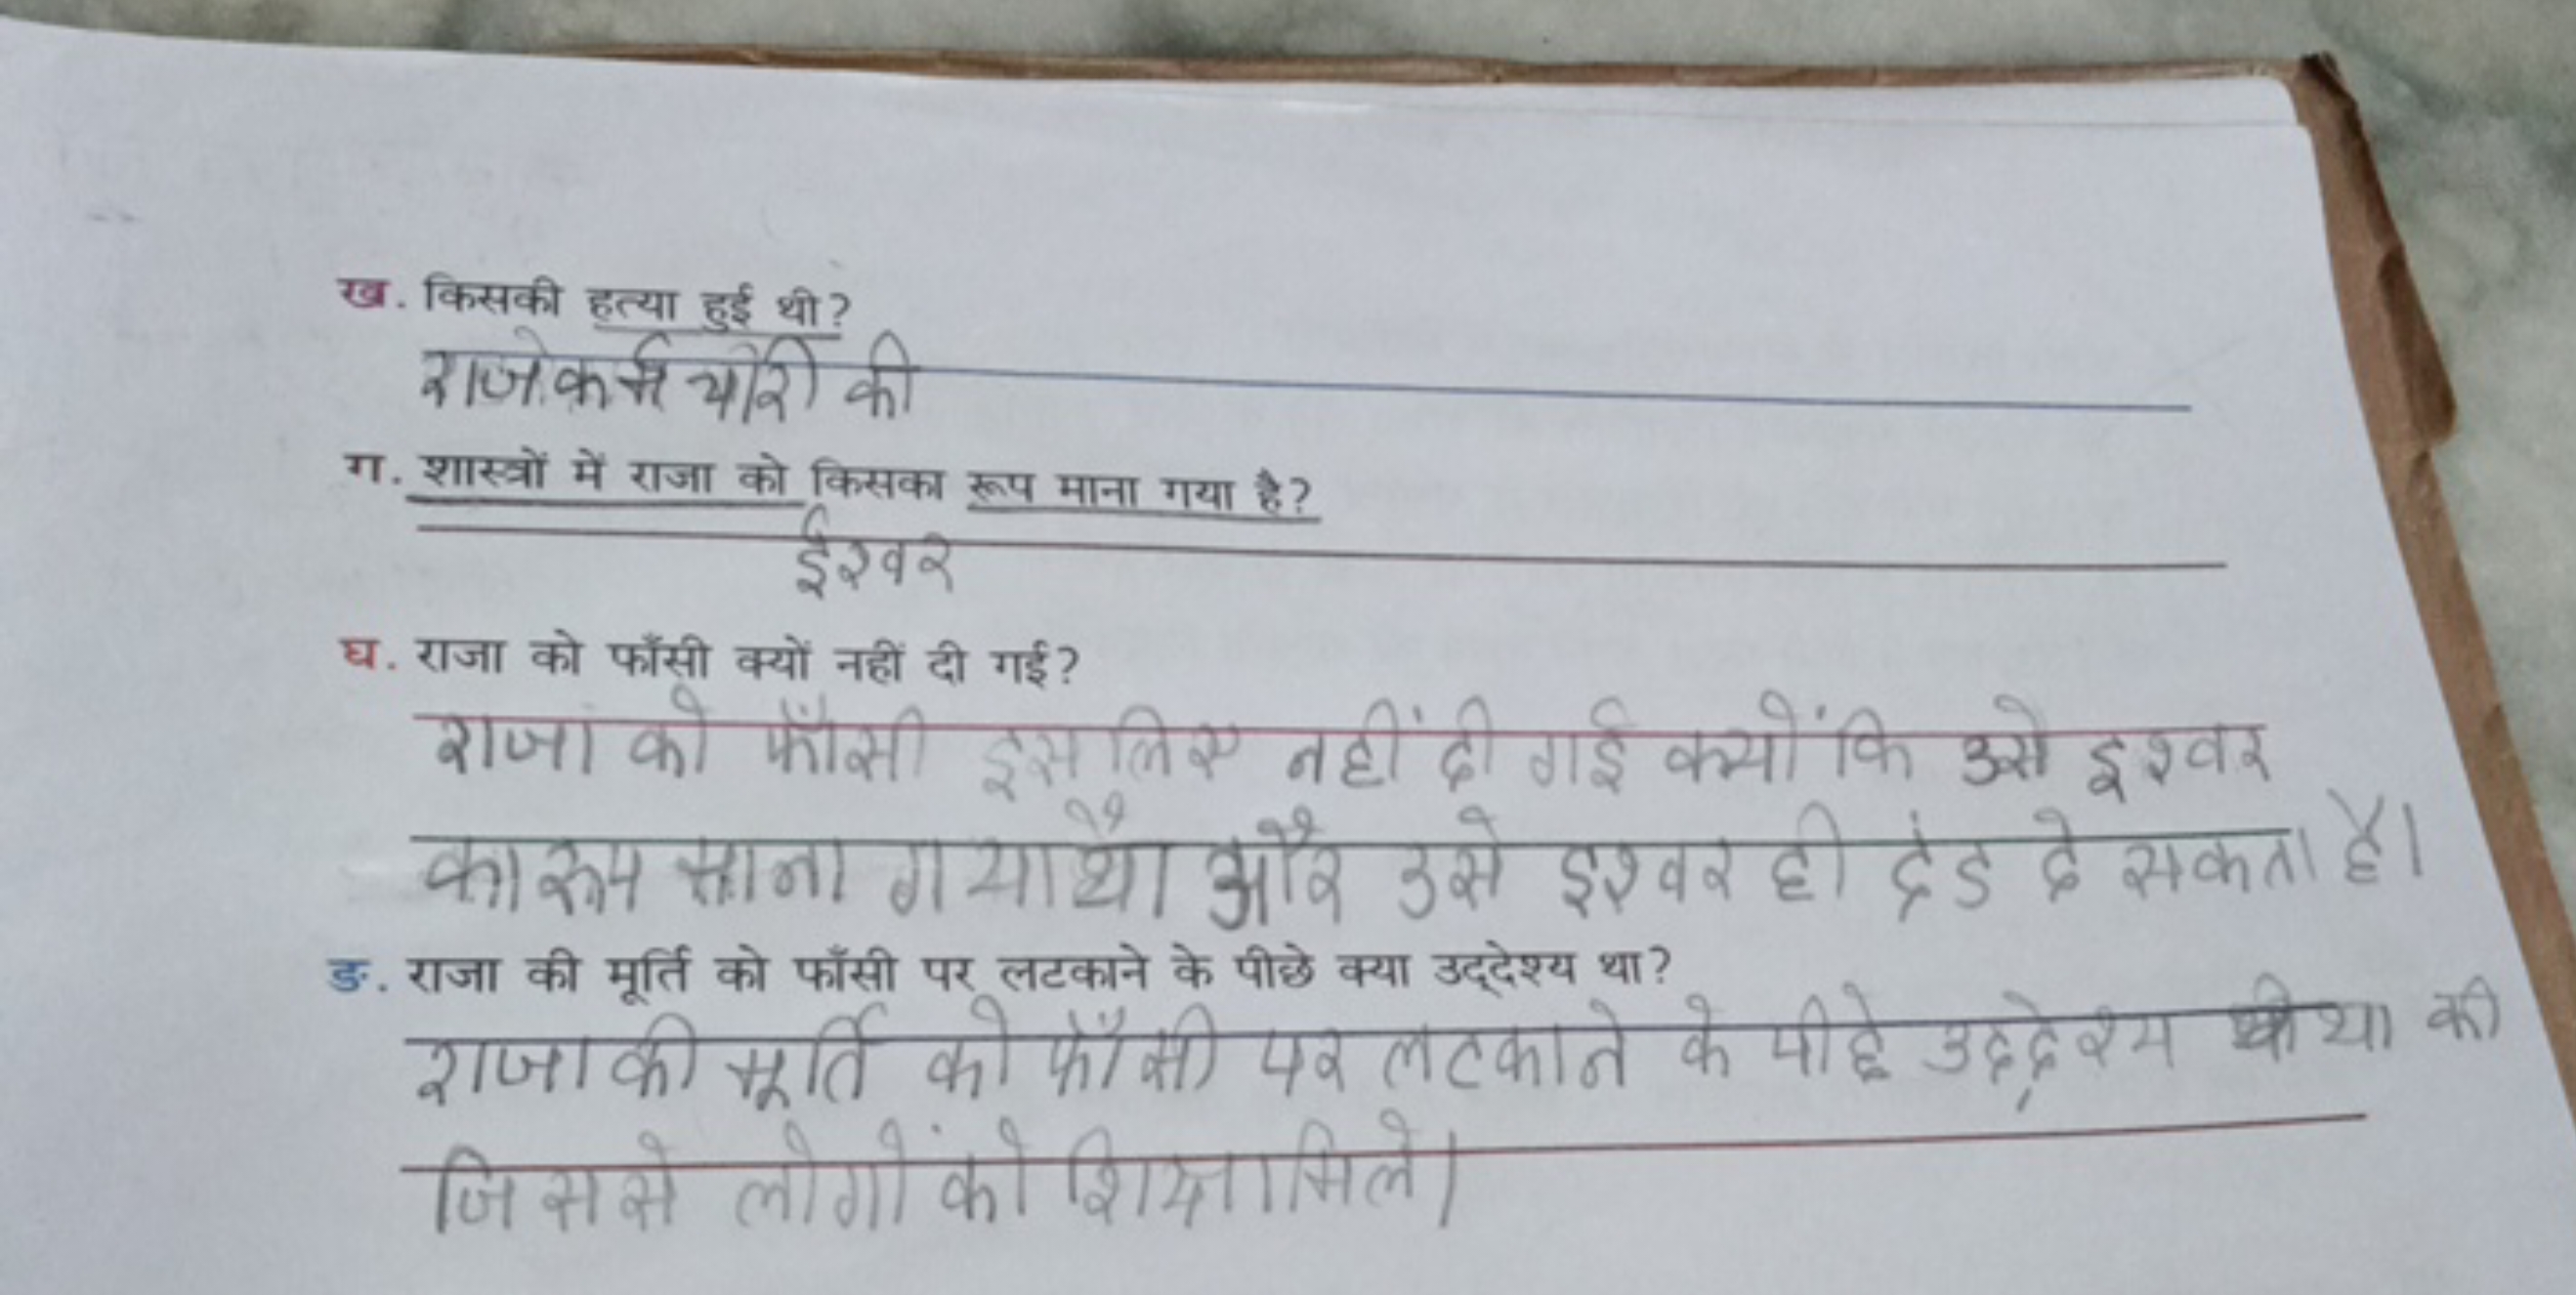 ख. किसकी हत्या हुई थी?
राजेकर्मचोरी की
ग. शास्त्रों में राजा को किसका रूप माना गया है?
ईश्वर
घ. राजा को फाँसी क्यों नहीं दी गई?
राजा को फाँसी इसलिए नहीं दी गई क्योंकि उसे इश्वर
का रूप माना गया था और उसे इश्वर ही दंड दे सकता है।
ङ. राजा की मूर्ति को फाँसी पर लटकाने के पीछे क्या उद्देश्य था?
राजा की मूर्ति को फाँसी पर लटकाने के पीछे उद्देश्य था की
जिससे लोगों को शिक्षा मिले।